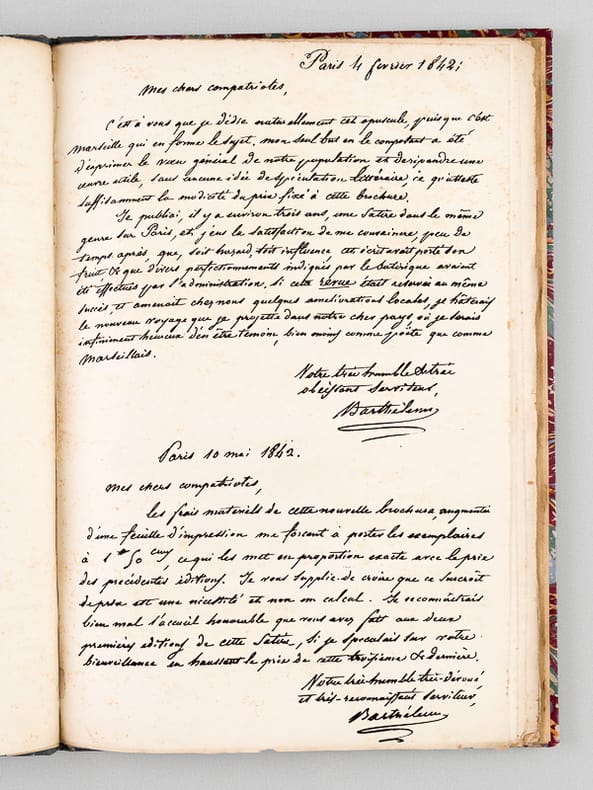 Paris 4 fevrier 1842;
Mes chers compatriotes,
C'est à vous que je dédie naturellement cet opuscule, puisque c'est
Marseille qui en forme le sujet, mon seul but en le composant a été
d'exprimer le vœu général de notre population et de répandre une
œuvre utile, sans aucune idée de spéculation littéraire, ce qu'atteste
suffisamment la modicité du prix fixé à cette brochure.
Je publiai, il y a environ trois ans, une Satire dans le même
genre sur Paris, et, j'eus la satisfaction de me convaincre, peu de
temps après, que, soit hazard, soit influence cet écrit avait porté son
fruit & que divers perfectionnements indiqués par le Satirique avaient
été effectués par l'administration, si cette revue était réservée au même
succès et amenait chez nous quelques ameliorations locales, je hâterais
le nouveau voyage que je projette dans notre cher pays, où je serais
infiniment heureux d'en être témoin, bien moins comme poëte que comme
Marseillais.
Votre très humble & très
obéissant Serviteur,
Barthélemy
Paris 10 mai 1842.
Mes chers compatriotes,
les frais matériels de cette nouvelle brochure, augmentée
d'une feuille d'impression me forcent à porter les exemplaires
à 1 50 , ce qui les met en proportion exacte avec le prix
des précédentes éditions. Je vous supplie de croire que ce surcroît
de prix est une nécessité et non un calcul. Je reconnaîtrais
bien mal l'accueil honorable que vous avez fait aux deux
premières éditions de cette Satire, si je spéculais sur votre
bienveillance en haussant le prix de cette troisième & dernière.
Votre très humble très-dévoué
et très-reconnaissant serviteur,
Barthélemy